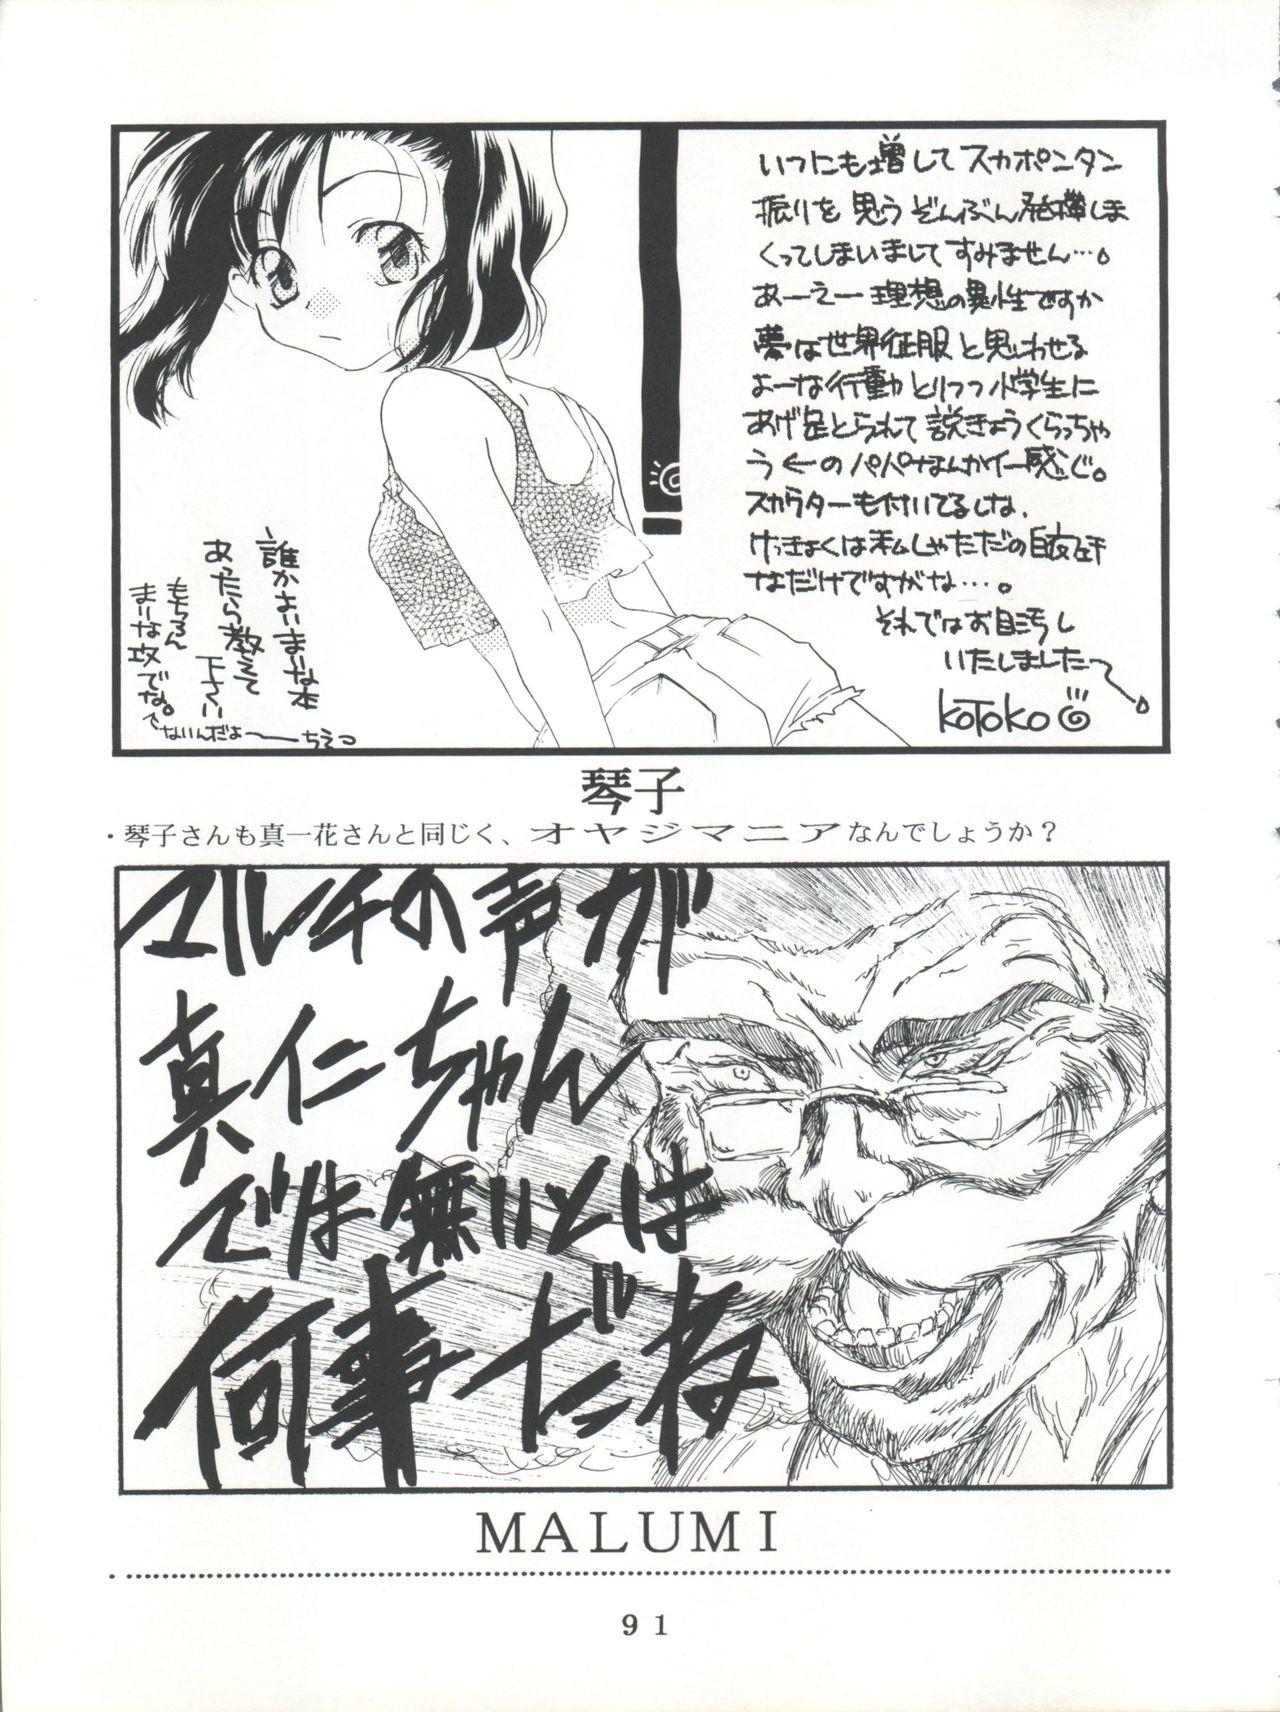 いつにも増してスカポンタン
振りを思うぞんぶん発揮しま
くってしまいましてすみません…。
あーえー理想の異性ですか
夢は世界征服と思わせる
よーな行動とりつつ小学生に
あげ足とられて説きょうくらっちゃ
う←のパパなんかイー感じ。
スカウターも付いてるしな、
けっきょくは私しゃただの
なだけですがな…。
それではお目汚し
いたしました〜
KOTOKO
誰かよいまいな本
あったら教えて
下さい
もちろん
まいな攻でな。
ないんだよ〜ちえっ
琴子
・琴子さんも真一花さんと同じく、オヤジマニアなんでしょうか？
マルチの声が
真仁ちゃん
では無いとは
何事だね
MALUMI
91